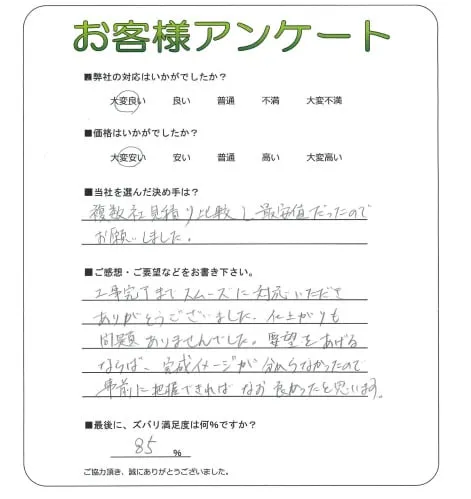 お客様アンケート
■弊社の対応はいかがでしたか？
大変良い 良い 普通 不満 大変不満
■価格はいかがでしたか？
大変安い 安い 普通 高い 大変高い
■当社を選んだ決め手は？
複数社見積り比較し最安値だったので
お願いしました。
■ご感想・ご要望などをお書き下さい。
工事完了までスムーズに対応いただき
ありがとうございました。仕上がりも
問題ありませんでした。要望をあげる
ならば、完成イメージが分からなかったので
事前に把握できればなお良かったと思います。
■最後に、ズバリ満足度は何%ですか？
85 %
ご協力頂き、誠にありがとうございました。